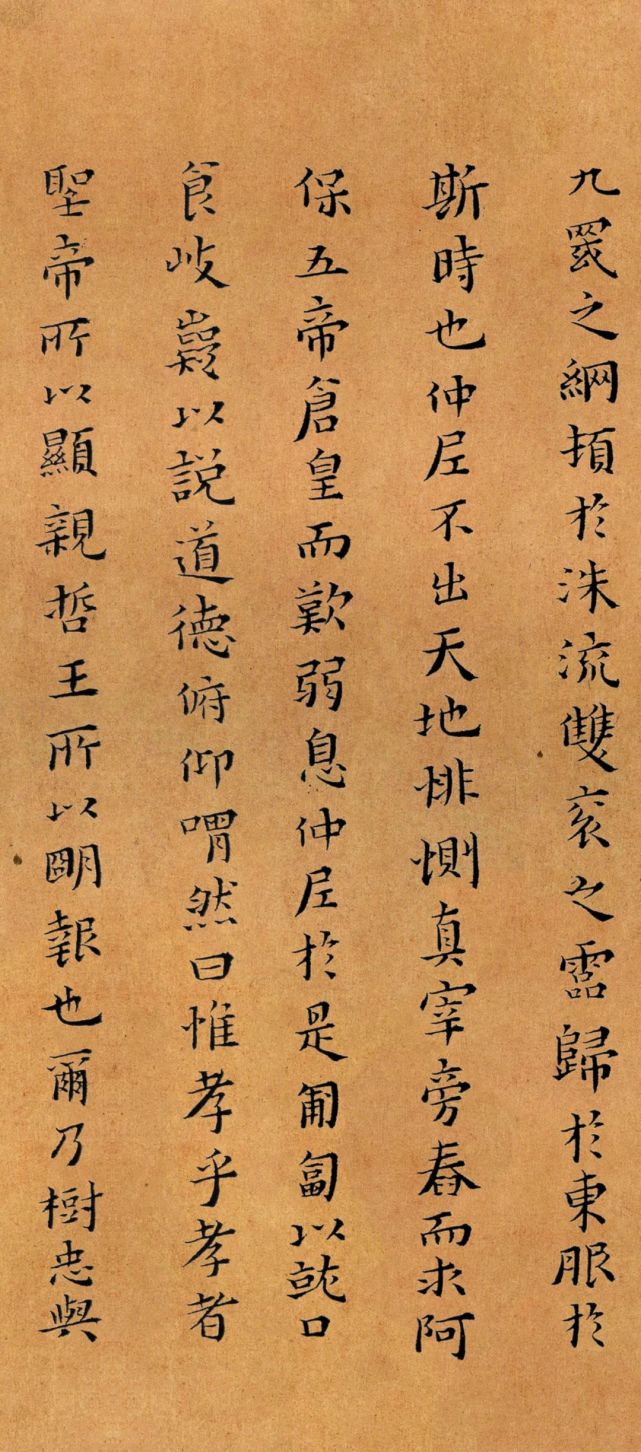 九罭之綱頓於洙流雙衮之霝歸於東服於
斯時也仲尼不出天地悱惻真宰旁舂而求阿
保五帝倉皇而歎弱息仲尼於是匍匐以就口
食岐嶷以説道德俯仰喟然曰惟孝乎孝者
聖帝所以顯親哲王所以明報也爾乃樹忠與